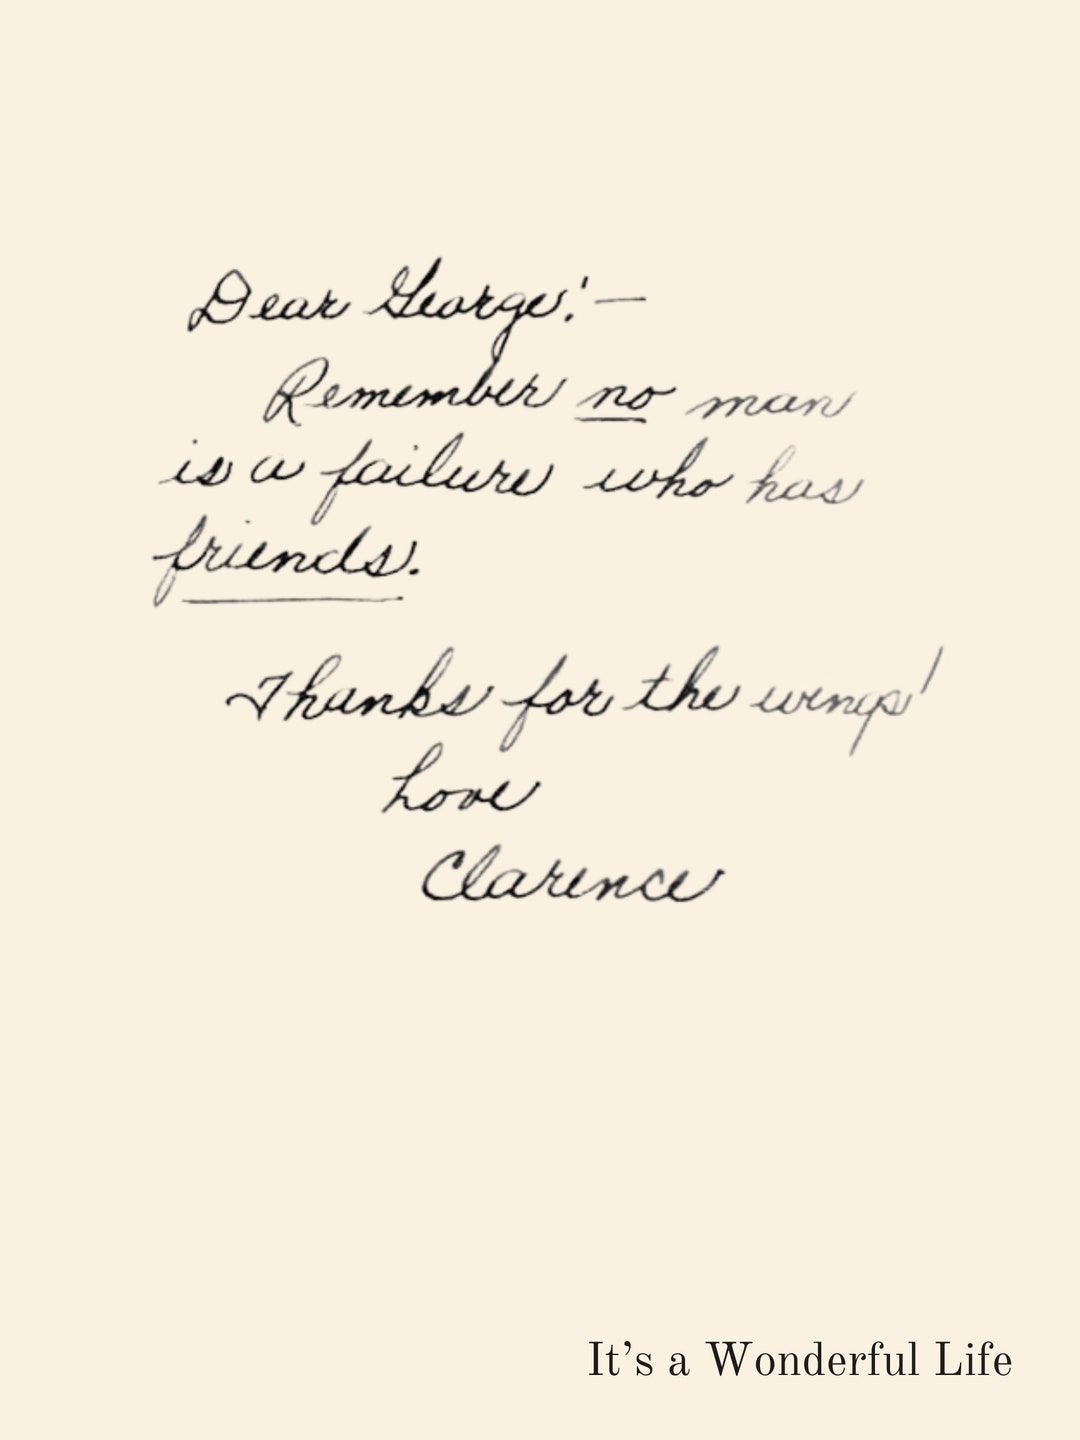 Dear George:—
Remember no man
is a failure who has
friends.
Thanks for the wings!
Love
Clarence
It's a Wonderful Life